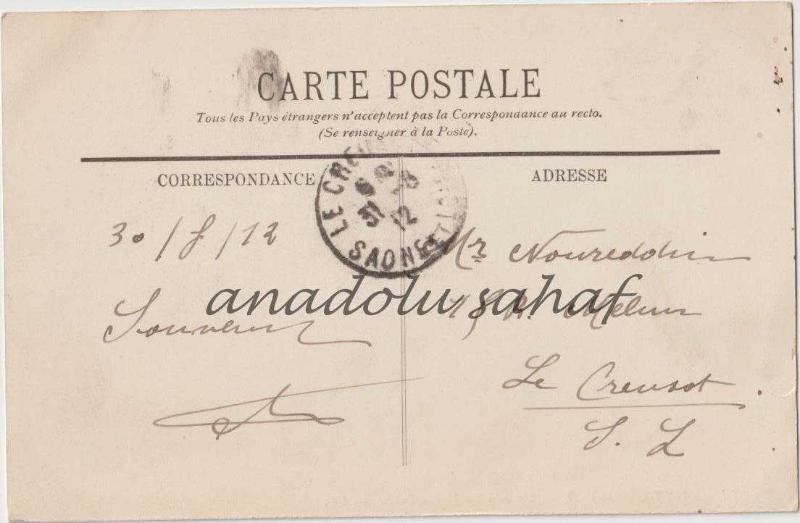 CARTE POSTALE
Tous les Pays étrangers n'acceptent pas la Correspondance au recto.
(Se renseigner à la Poste).
CORRESPONDANCE
ADRESSE
LE CREU
SAONE
31 8
12
30/8/12
Souvenir
Mr Noureddin
Le Creusot
S. L
anadolu sahaf